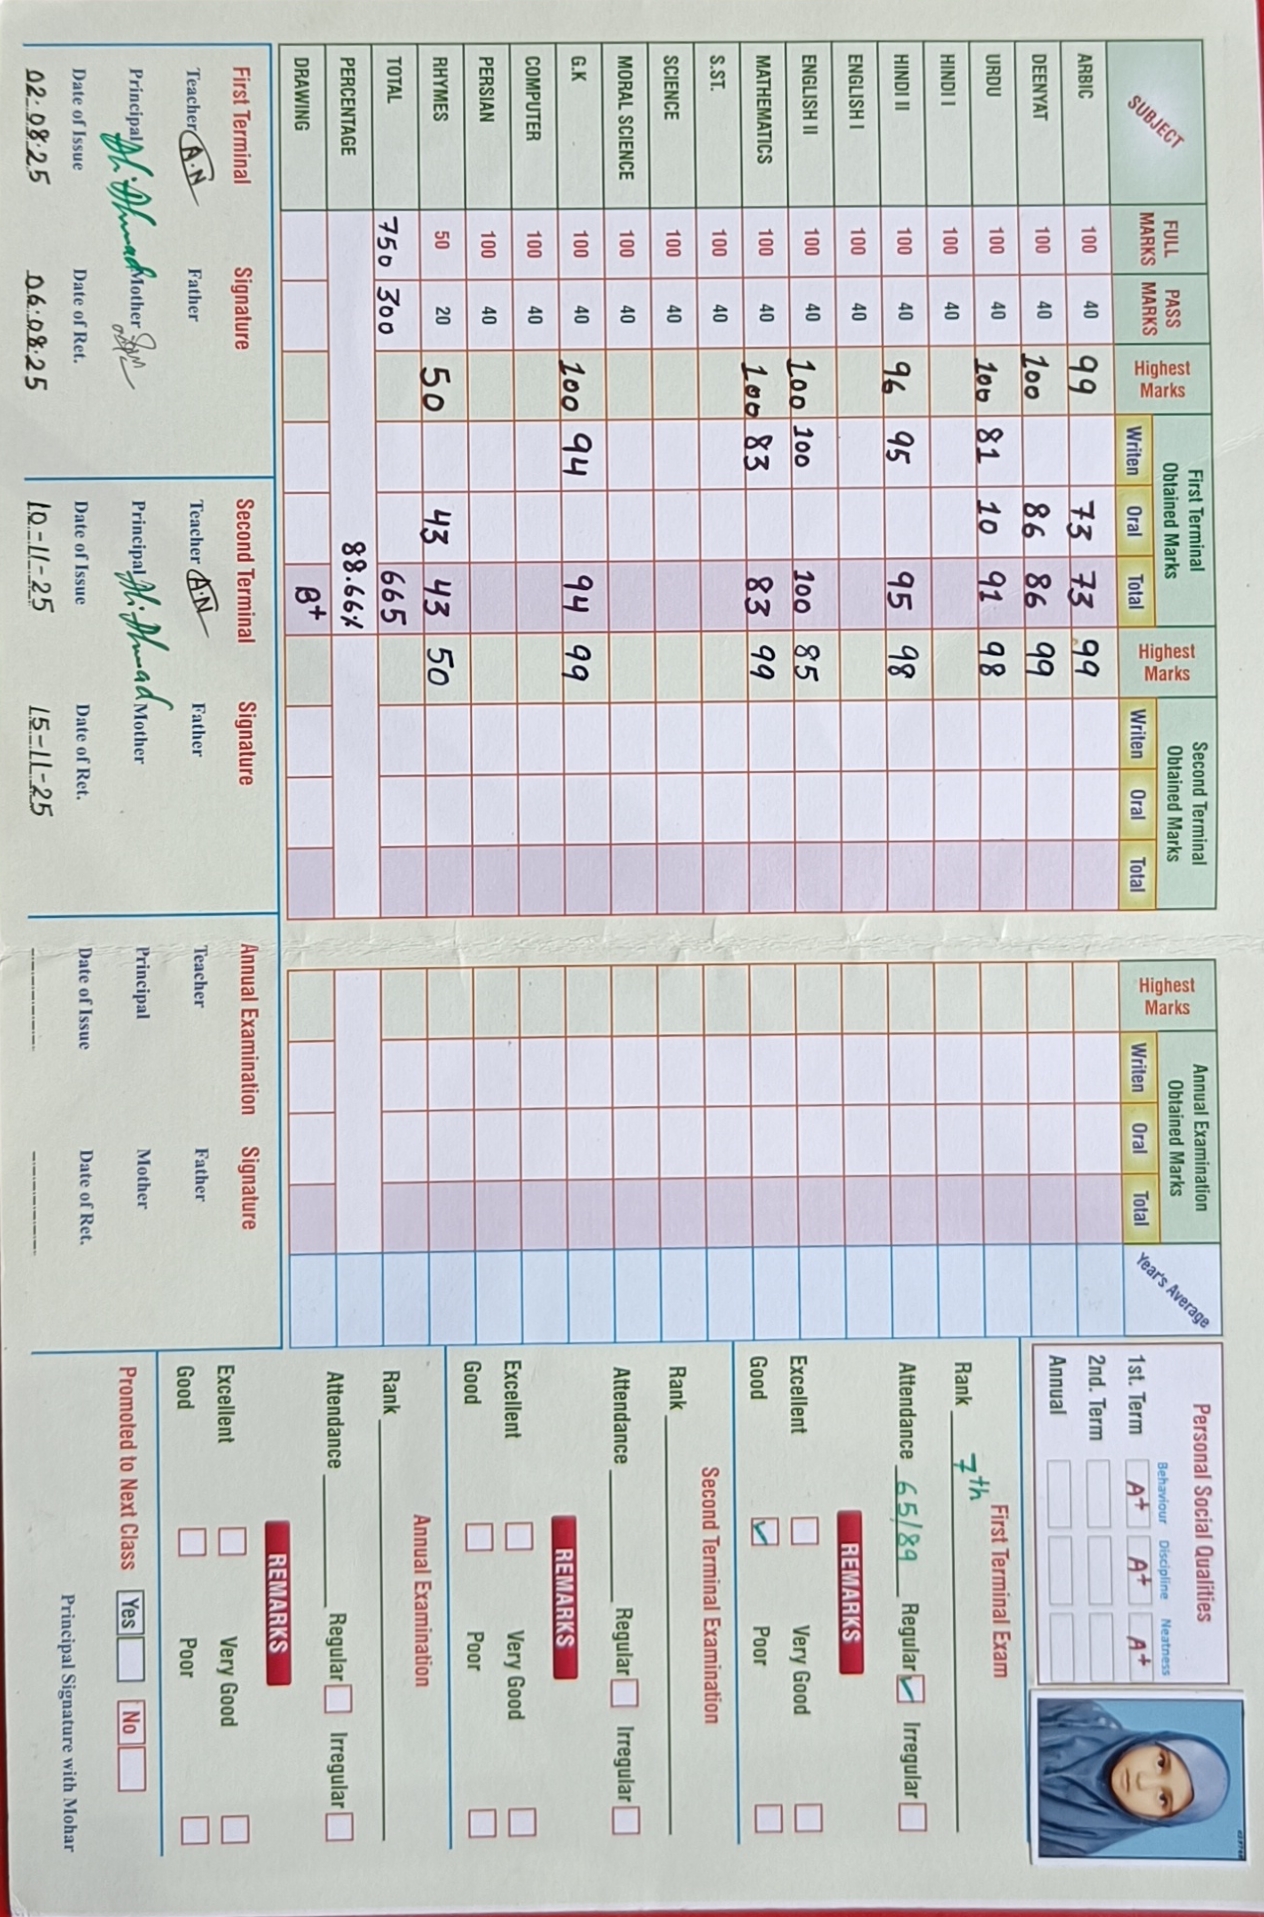 SUBJECT FULL MARKS PASS MARKS Highest Marks First Terminal Obtained Marks Writen Oral Total Highest Marks Second Terminal Obtained Marks Writen Oral Total Highest Marks Annual Examination Obtained Marks Writen Oral Total Year's Average
ARBIC 100 40 99 73 73 99
DEENYAT 100 40 100 86 86 99
URDU 100 40 100 81 10 91 98
HINDI I 100 40
HINDI II 100 40 96 95 95 98
ENGLISH I 100 40
ENGLISH II 100 40 100 100 100 85
MATHEMATICS 100 40 100 83 83 99
S.ST. 100 40
SCIENCE 100 40
MORAL SCIENCE 100 40
G.K 100 40 100 94 94 99
COMPUTER 100 40
PERSIAN 100 40
RHYMES 50 20 50 43 43 50
TOTAL 750 300 665
PERCENTAGE 88.66%
DRAWING B+
First Terminal Signature
Teacher A.N Father
Principal Ali Ahmad Mother
Date of Issue Date of Ret.
02.08.25 06.08.25
Second Terminal Signature
Teacher A.N Father
Principal Ali Ahmad Mother
Date of Issue Date of Ret.
10-11-25 15-11-25
Annual Examination Signature
Teacher Father
Principal Mother
Date of Issue Date of Ret.
Personal Social Qualities
Behaviour Discipline Neatness
1st. Term A+ A+ A+
2nd. Term
Annual
First Terminal Exam
Rank 7th
Attendance 65/89 Regular Irregular
REMARKS
Excellent Very Good
Good Poor
Second Terminal Examination
Rank
Attendance Regular Irregular
REMARKS
Excellent Very Good
Good Poor
Annual Examination
Rank
Attendance Regular Irregular
REMARKS
Excellent Very Good
Good Poor
Promoted to Next Class Yes No
Principal Signature with Mohar